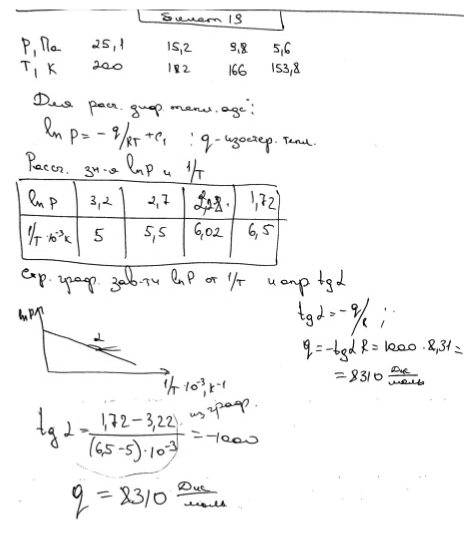 Билет 19
P, Па 25,1 15,2 9,8 5,6
T, К 200 182 166 153,8
Для расч. диф. тепл. адс:
ln P = - q/RT + C₁ ; q - изостер. тепл.
Рассч. зн-я lnP и 1/T
lnP 3,2 2,7 1,72
1/T · 10⁻³ К 5 5,5 6,02 6,5
Стр. граф. зав-ти lnP от 1/T и опр tg α
tg α = - q/R ;
q = -tg α R = 1000 · 8,31 =
= 8310 Дж/моль
ln P
α
1/T · 10⁻³, К⁻¹
tg α = 1,72 - 3,22 / (6,5 - 5) · 10⁻³ = -1000
из граф.
q = 8310 Дж/моль